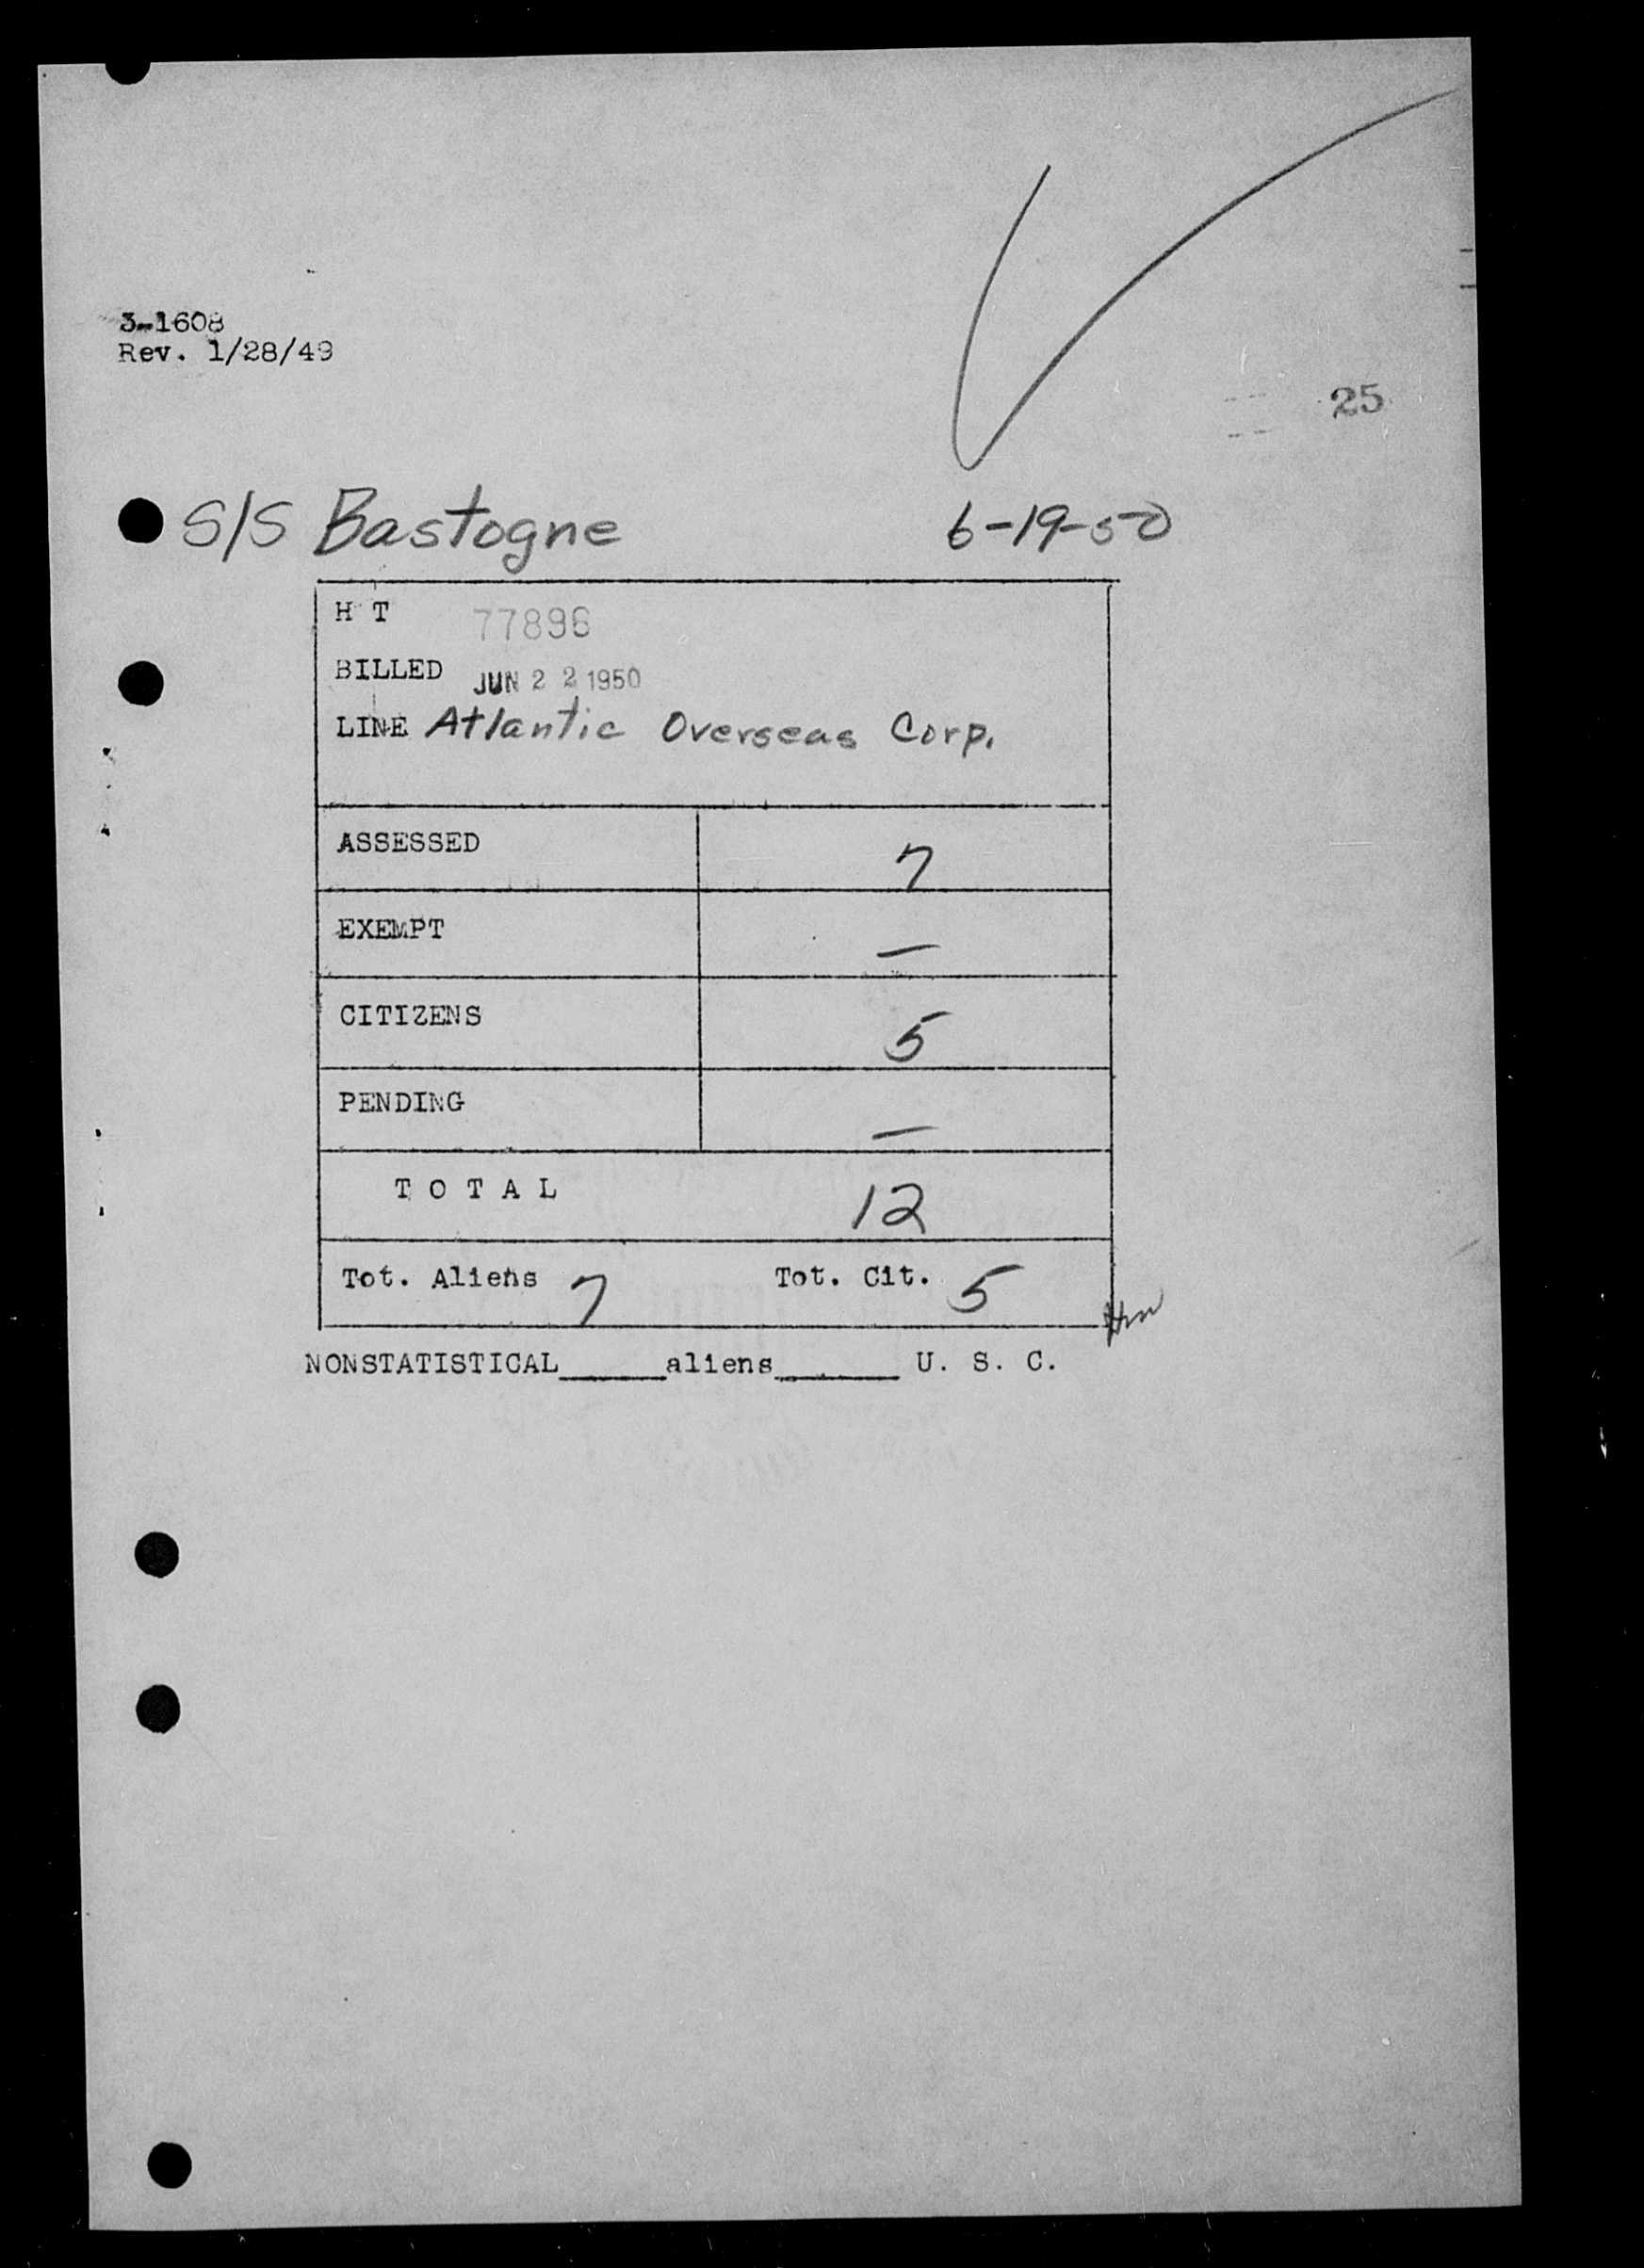 3-1608
Rev. 1/28/49
25
S/S Bastogne 6-19-50
H T 77896
BILLED JUN 22 1950
LINE Atlantic Overseas Corp.
ASSESSED 7
EXEMPT —
CITIZENS 5
PENDING —
T O T A L 12
Tot. Aliens 7 Tot. Cit. 5
NONSTATISTICAL______aliens_______ U. S. C.